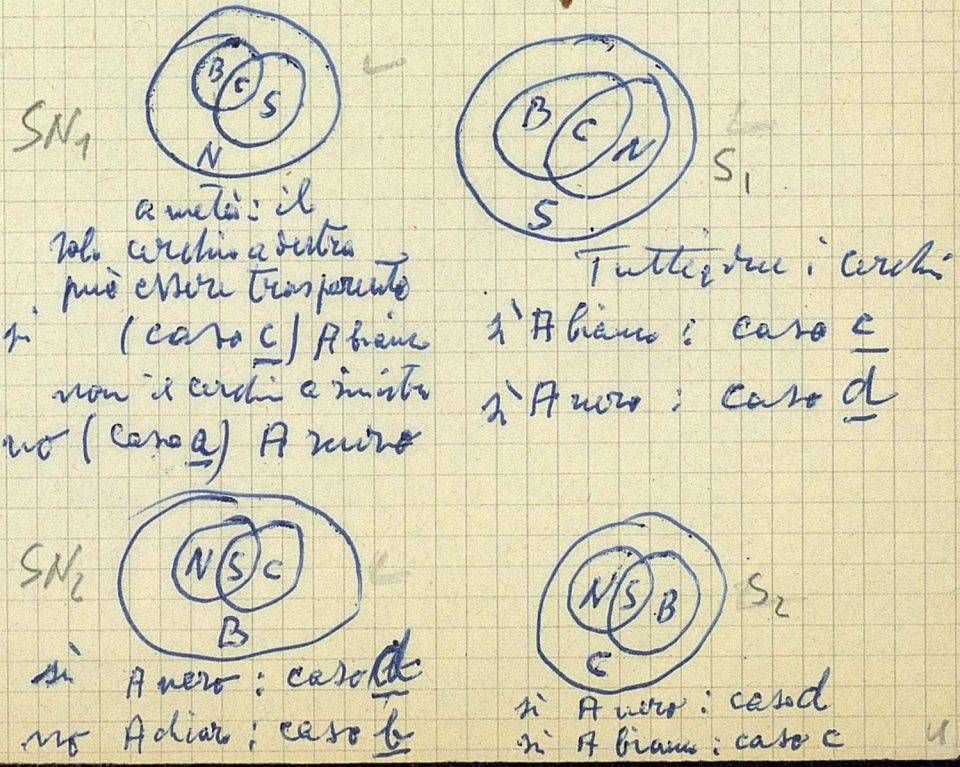 SN1
B C S
N
a metà: il
solo cerchio a destra
può essere trasparente
si (caso c) A bianco
non il cerchio a sinistra
no (caso a) A nero
B C N
S
S1
Tutti e due i cerchi
sì A bianco : caso c
sì A nero : caso d
SN2
N S C
B
sì A nero : caso d
no A chiaro : caso b
N S B
C
S2
sì A nero : caso d
sì A bianco : caso c